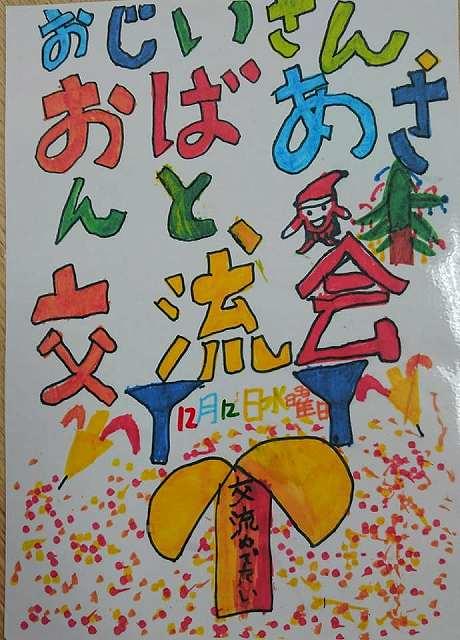 おじいさん
おばあさ
んと
交流会
12月12日水曜日
交流めでたい